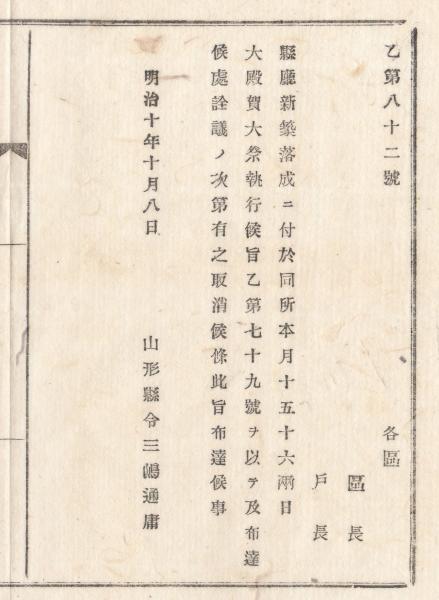 乙第八十二號
各區
區長
戸長
縣廳新築落成ニ付於同所本月十五十六兩日
大殿賀大祭執行候旨乙第七十九號ヲ以テ及布達
候處詮議ノ次第有之取消候條此旨布達候事
明治十年十月八日
山形縣令三嶋通庸